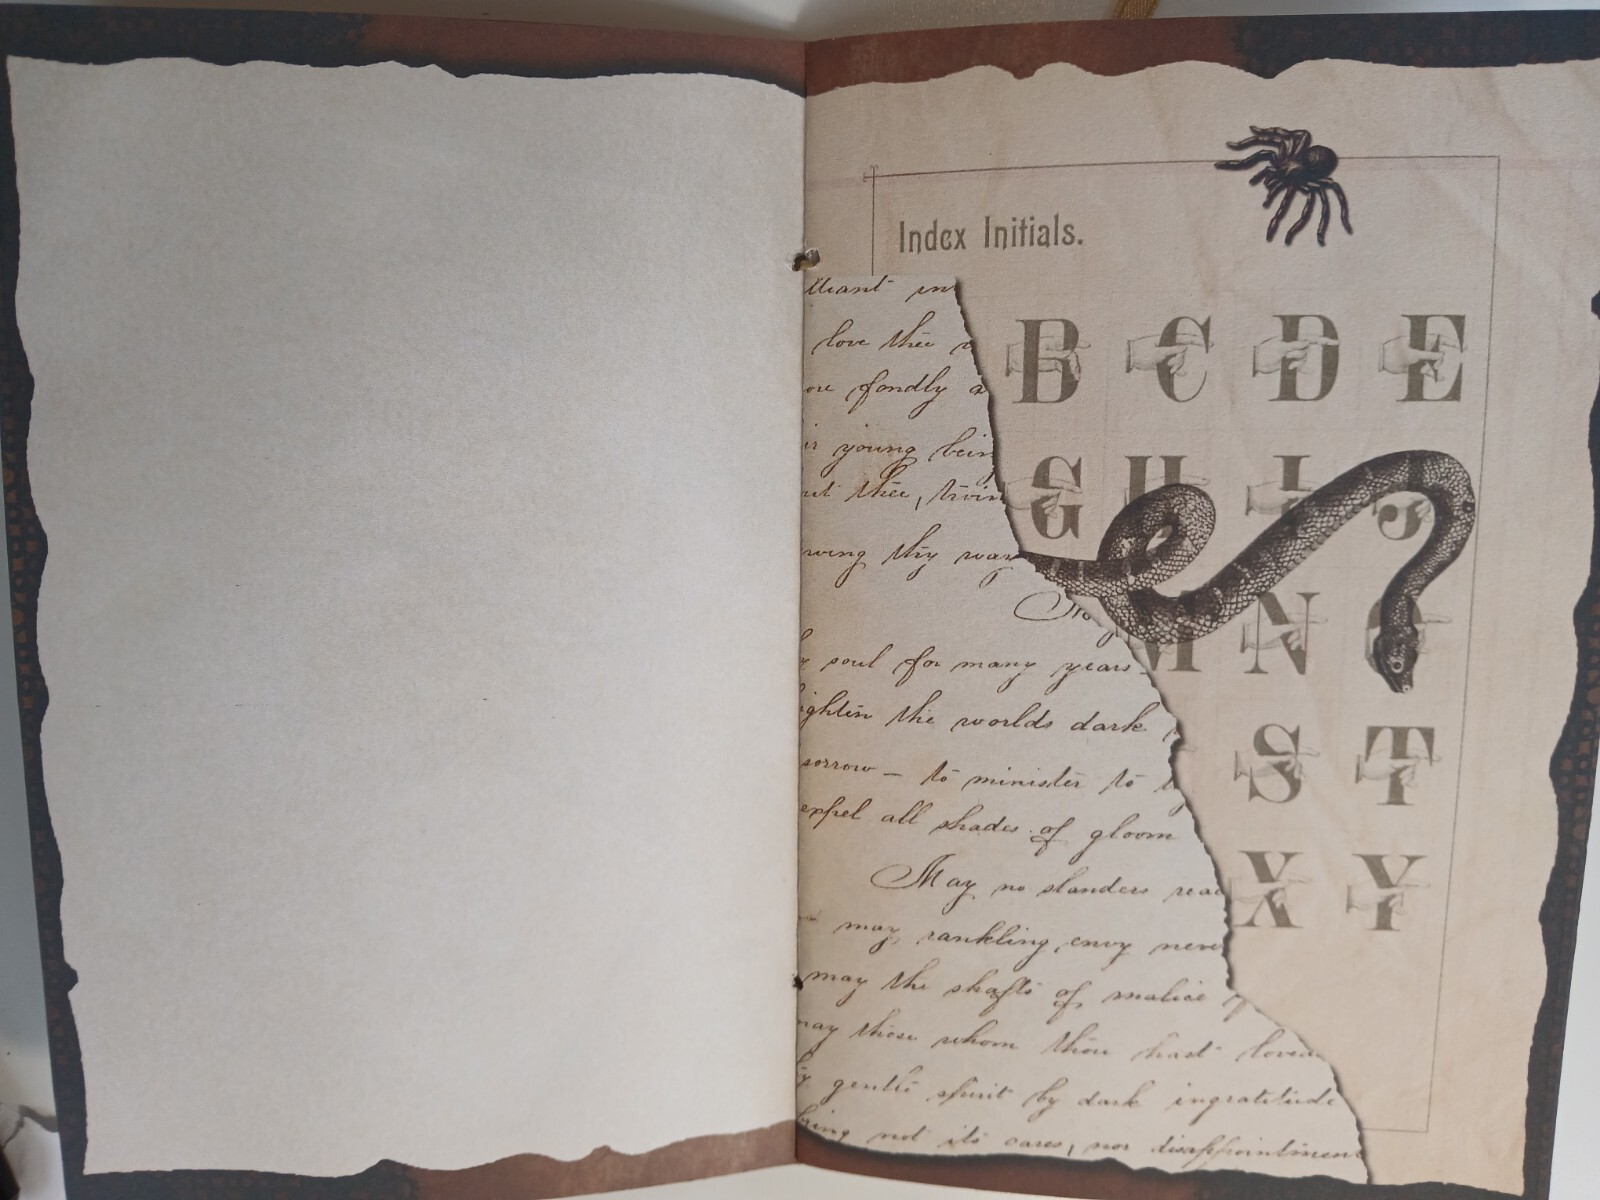 Index Initials.
B C D E
G H I J
M N O
S T
X Y
love thee
fondly
young bein
thee,
thy
soul for many years
the worlds dark
sorrow — to minister to
all shades of gloom
May no slanders
may rankling envy never
may the shafts of malice
may those whom thou hast loved
gentle spirit by dark ingratitude
not its cares, nor disappointment